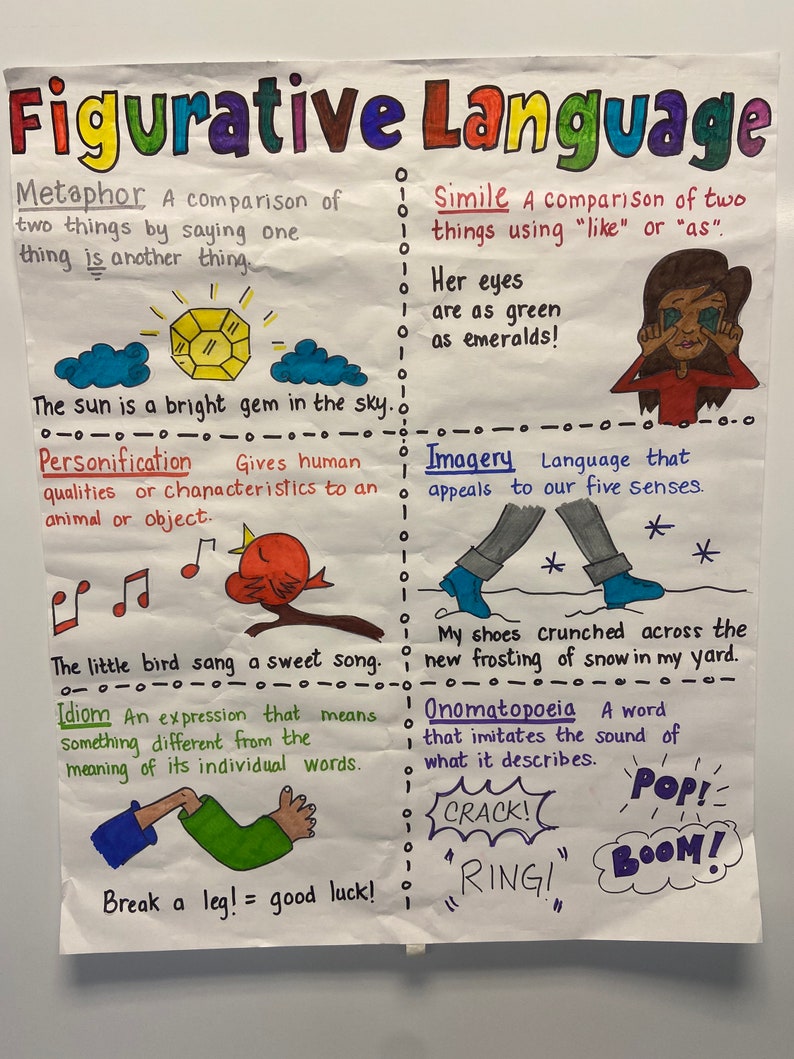 Figurative Language
Metaphor A comparison of
two things by saying one
thing is another thing.
The sun is a bright gem in the sky.
Simile A comparison of two
things using "like" or "as".
Her eyes
are as green
as emeralds!
Personification Gives human
qualities or chanacteristics to an
animal or object.
The little bird sang a sweet song.
Imagery Language that
appeals to our five senses.
My shoes crunched across the
new frosting of snow in my yard.
Idiom An expression that means
something different from the
meaning of its individual words.
Break a leg! = good luck!
Onomatopoeia A word
that imitates the sound of
what it describes.
CRACK!
POP!
"RING!"
BOOM!